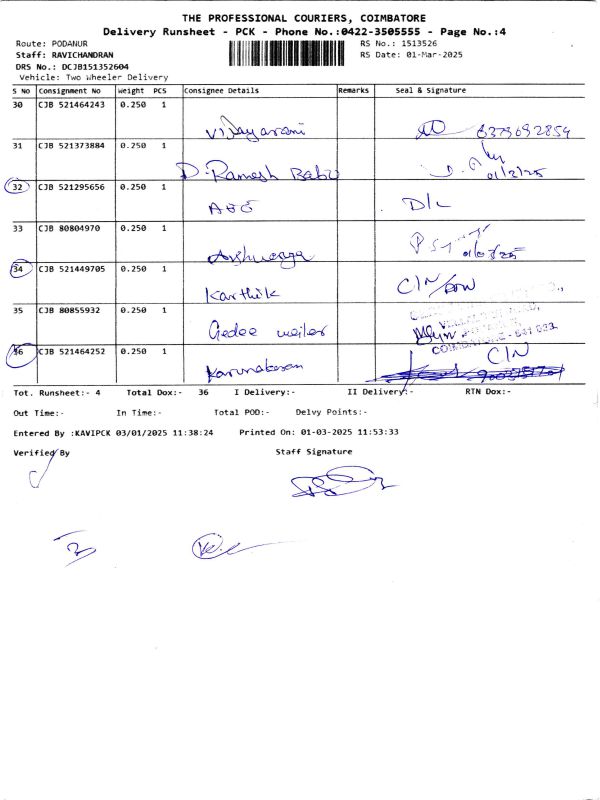 THE PROFESSIONAL COURIERS, COIMBATORE
Delivery Runsheet - PCK - Phone No.:0422-3505555 - Page No.:4
Route: PODANUR RS No.: 1513526
Staff: RAVICHANDRAN RS Date: 01-Mar-2025
DRS No.: DCJB151352604
Vehicle: Two Wheeler Delivery
S No Consignment No Weight PCS Consignee Details Remarks Seal & Signature
30 CJB 521464243 0.250 1
Vijayarani 6379692859
31 CJB 521373884 0.250 1
D. Ramesh Babu
32 CJB 521295656 0.250 1
AEE D/L
33 CJB 80804970 0.250 1
34 CJB 521449705 0.250 1
Karthik C/N/
35 CJB 80855932 0.250 1
Gedee weiler
COIMBATORE - 641 023.
36 CJB 521464252 0.250 1
Karunakaran C/N
Tot. Runsheet:- 4 Total Dox:- 36 I Delivery:- II Delivery:- RTN Dox:-
Out Time:- In Time:- Total POD:- Delvy Points:-
Entered By :KAVIPCK 03/01/2025 11:38:24 Printed On: 01-03-2025 11:53:33
Verified By Staff Signature